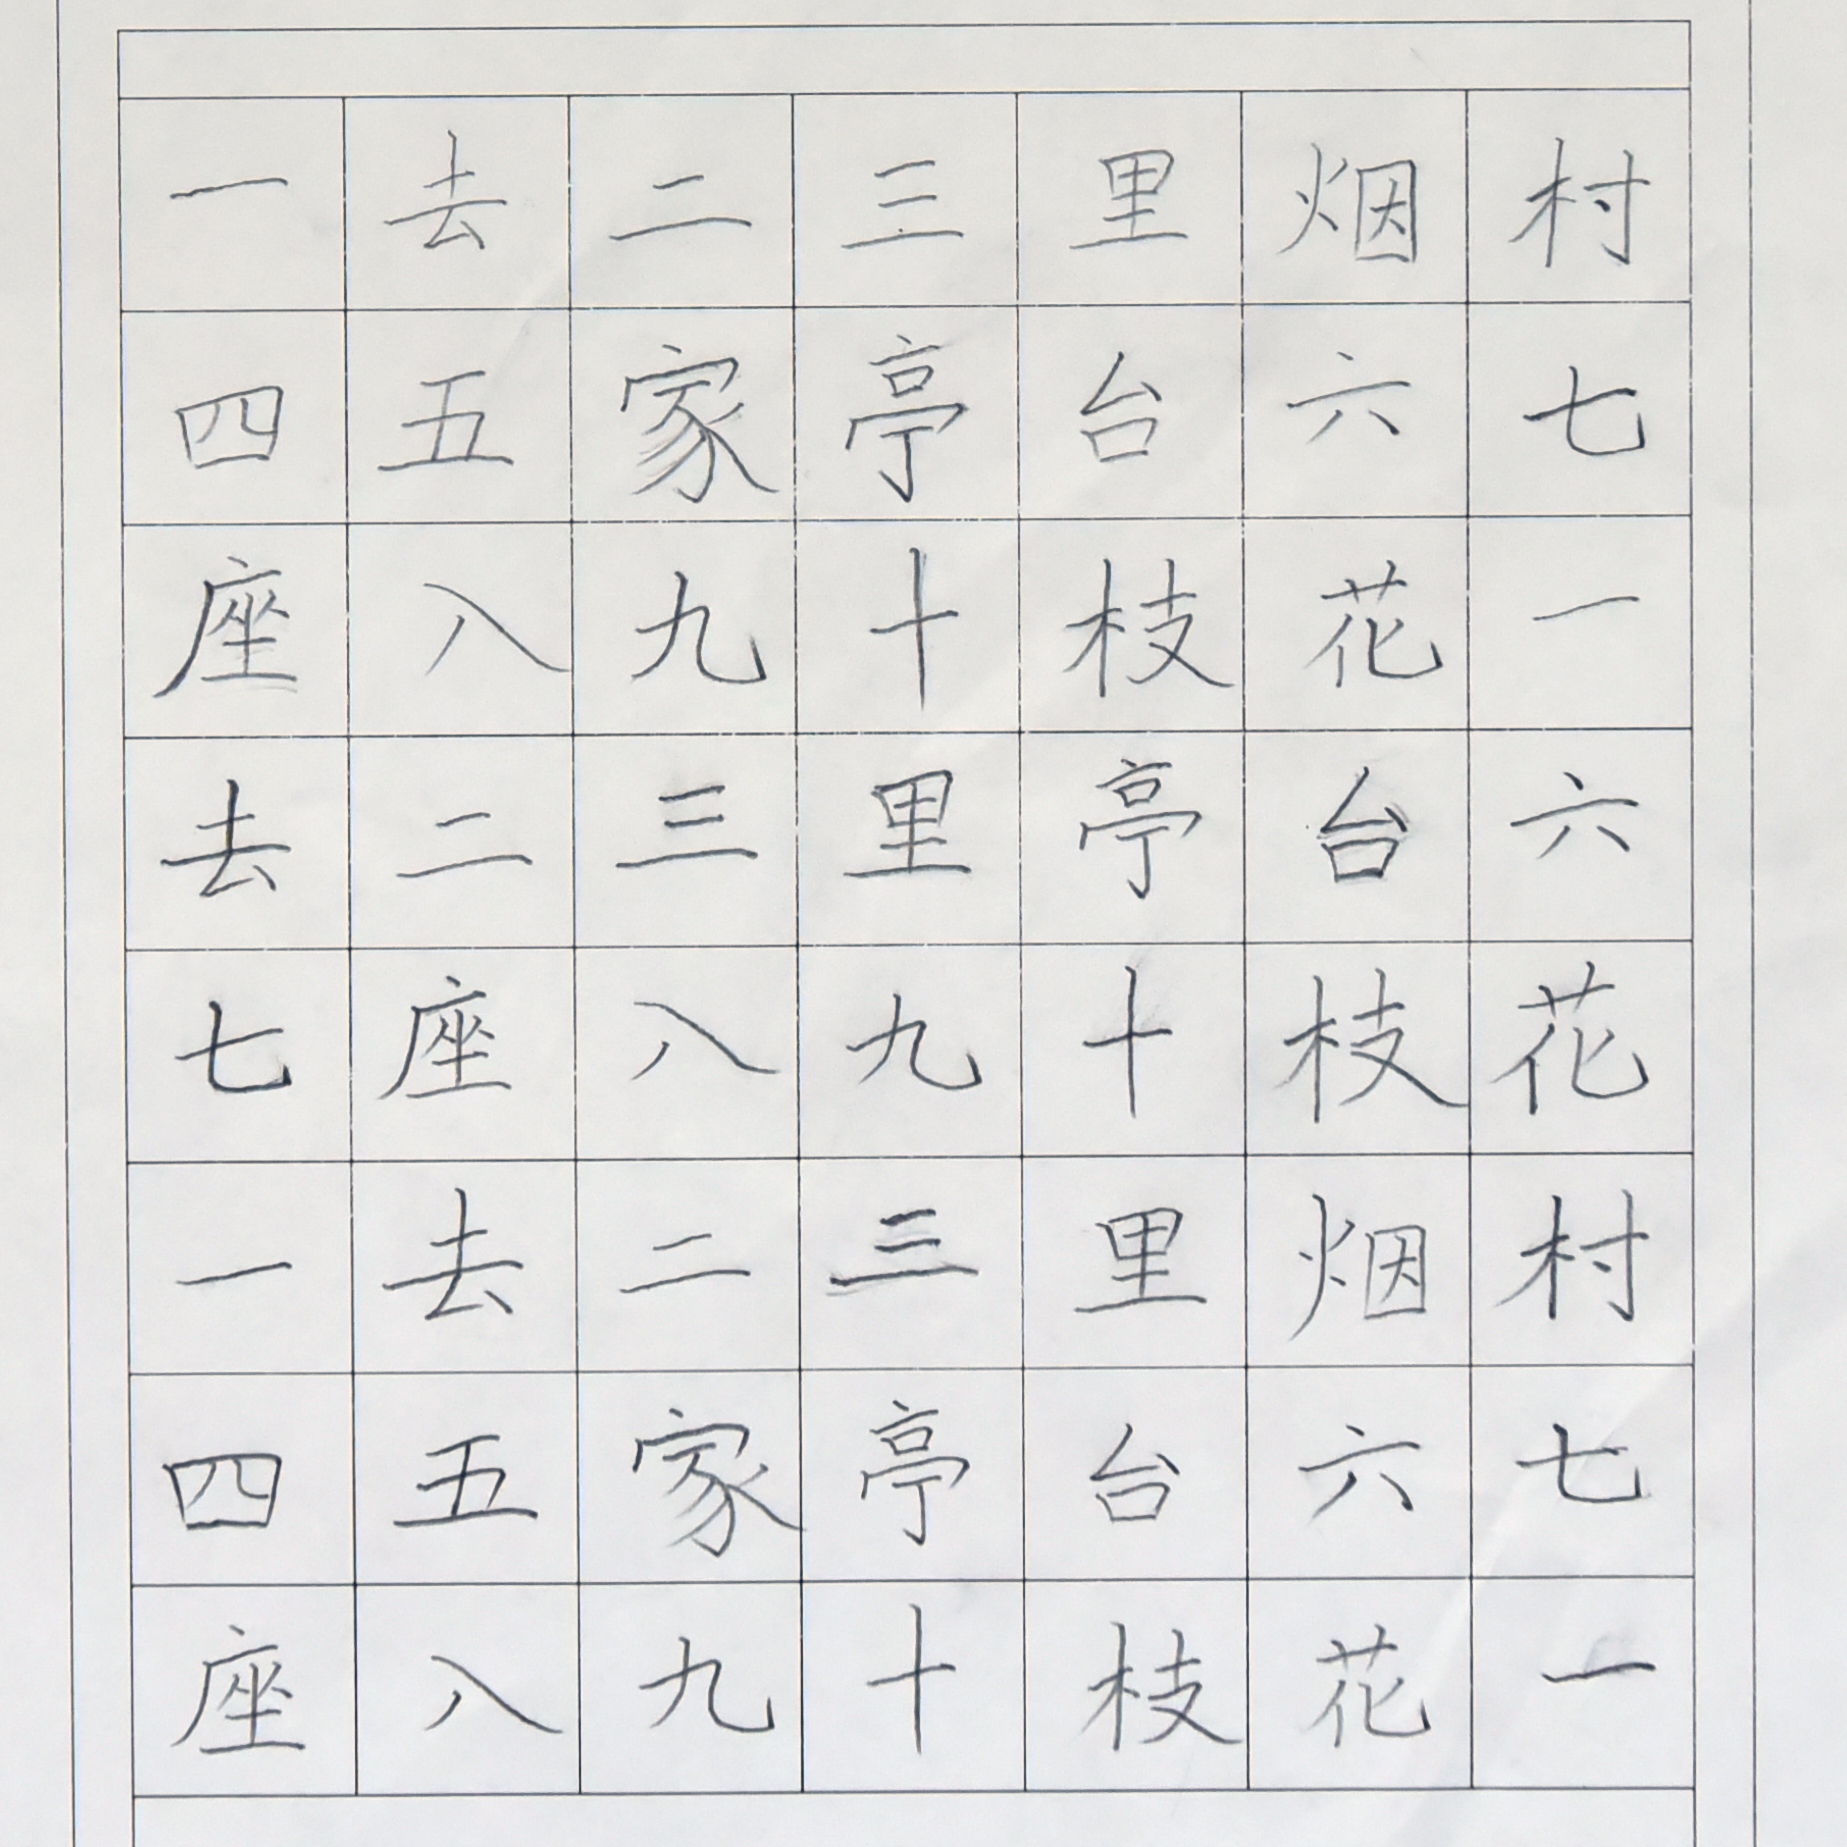 一去二三里烟村
四五家亭台六七
座八九十枝花一
去二三里亭台六
七座八九十枝花
一去二三里烟村
四五家亭台六七
座八九十枝花一